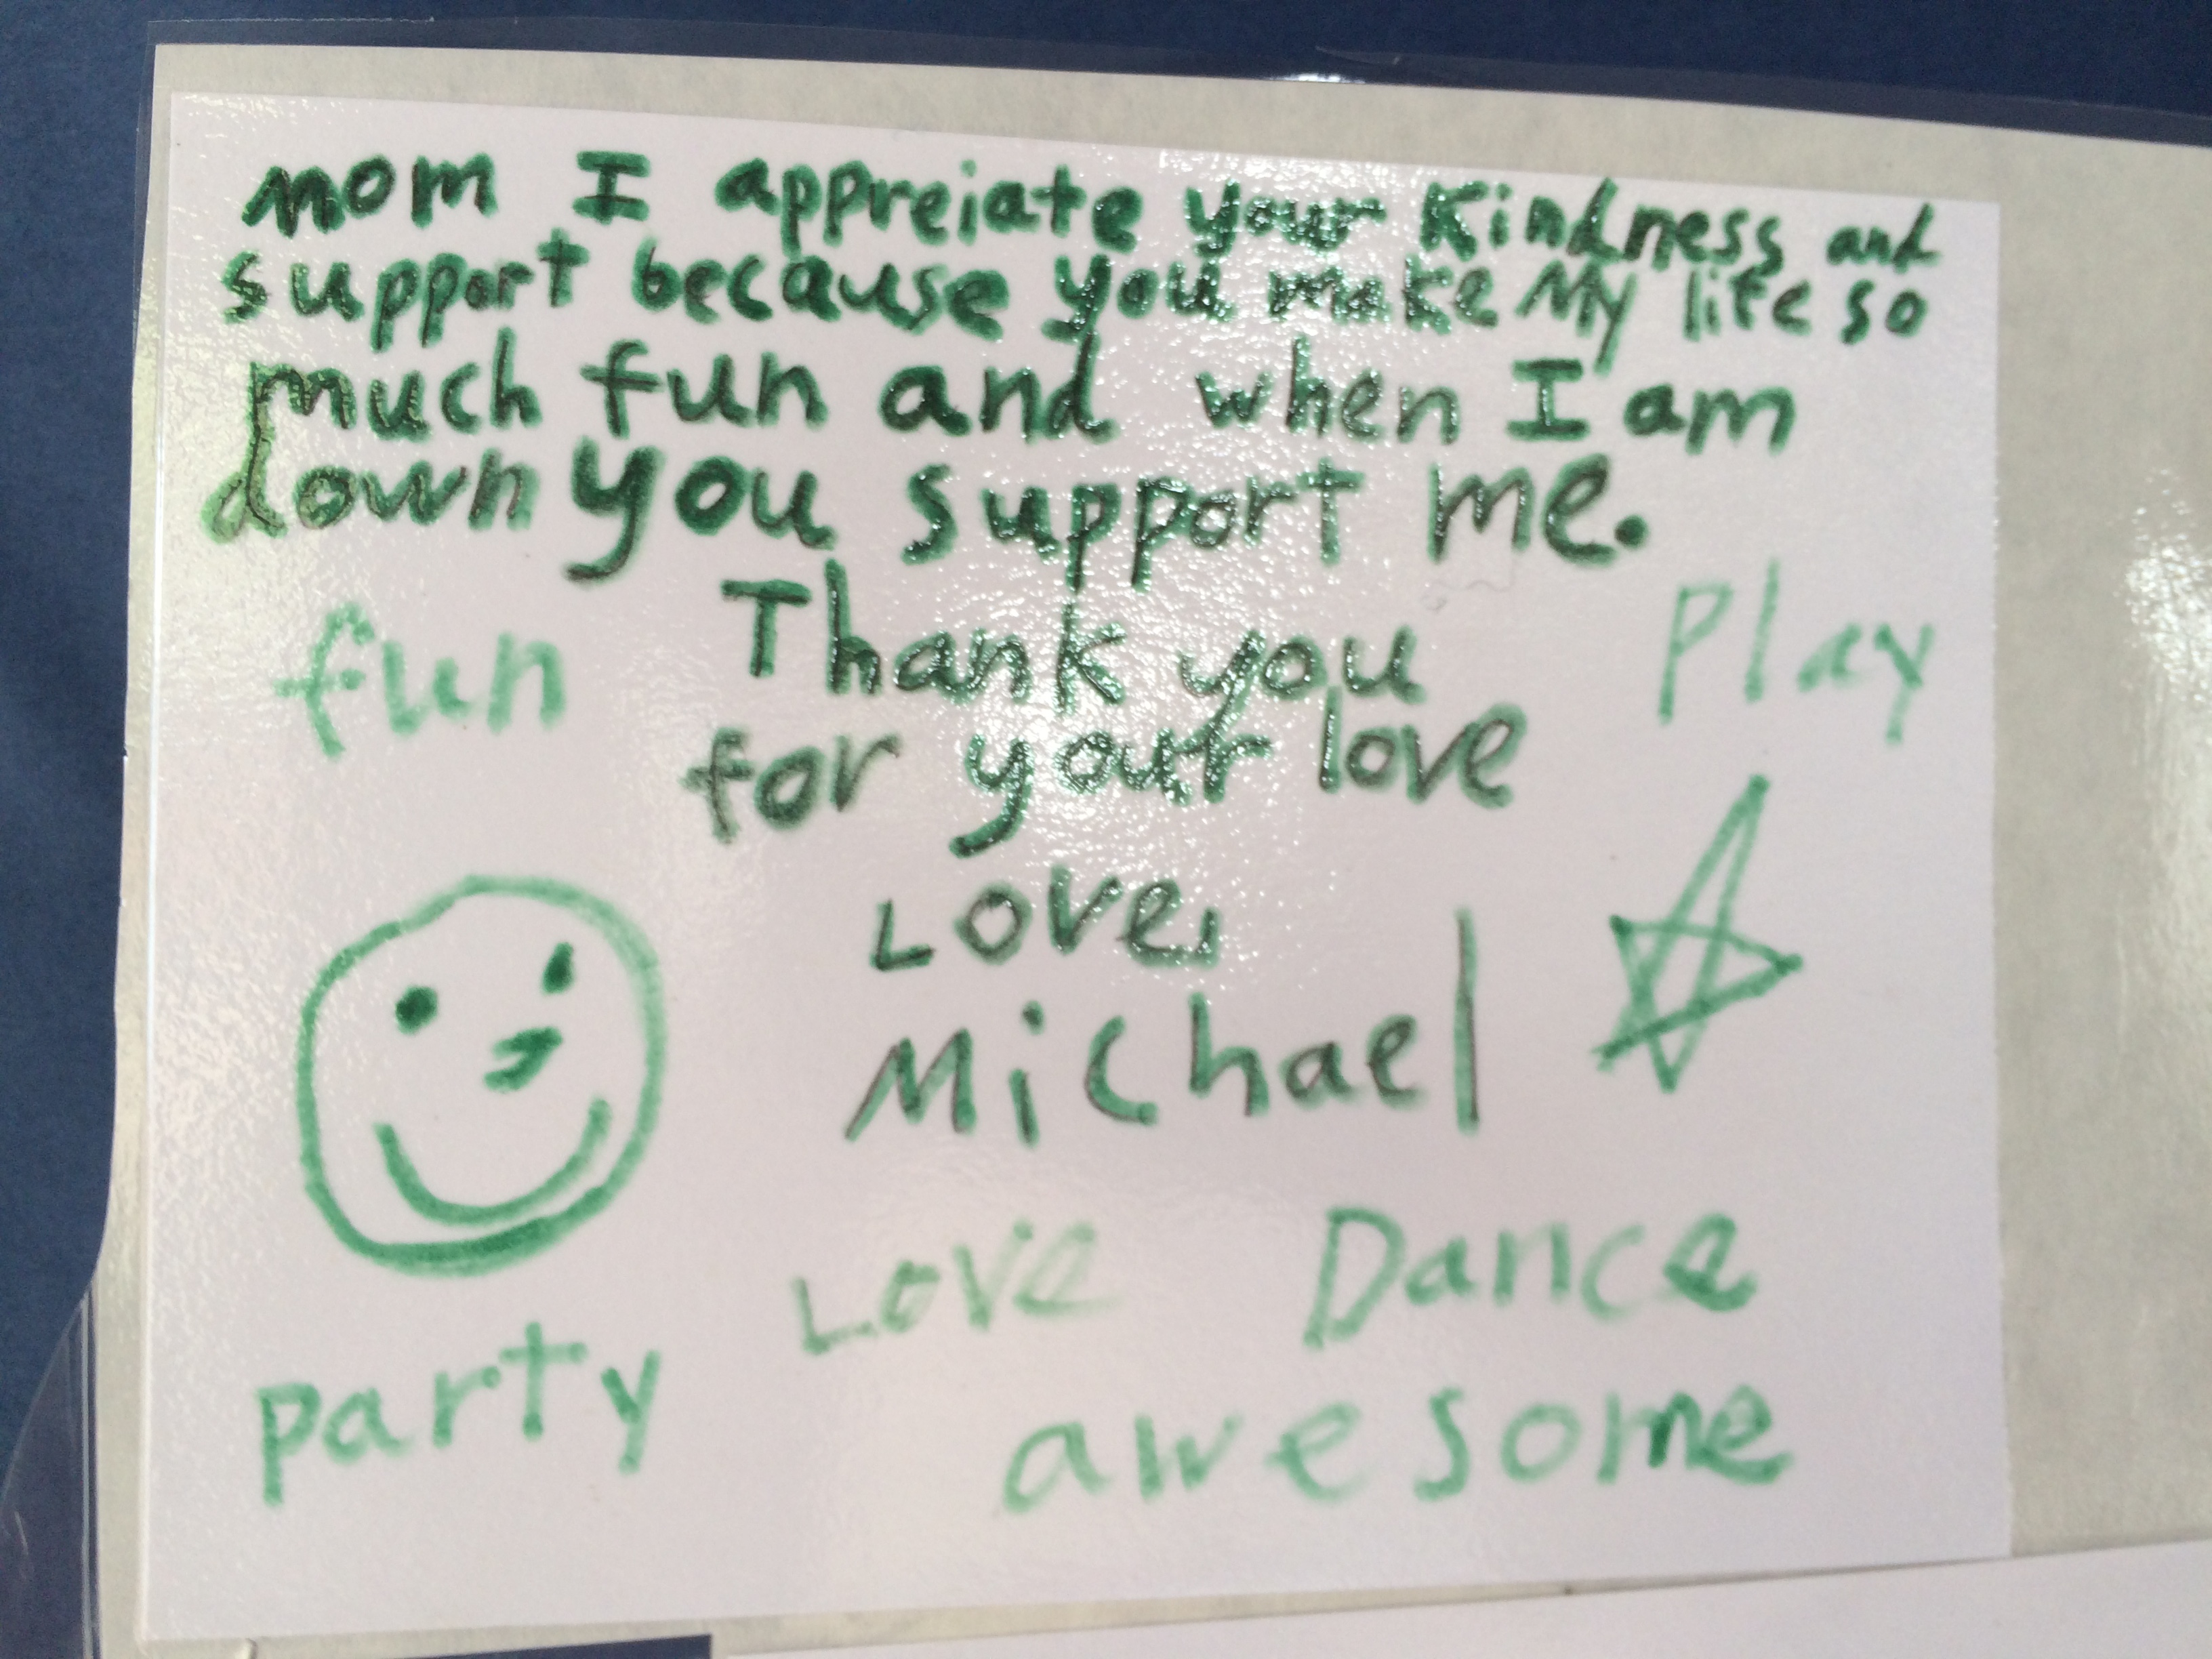 mom I appreiate your Kindness and
support because you make My life so
much fun and when I am
down you support me.
Thank you
for your love
fun
Play
Love,
Michael
Love
Dance
party
awesome